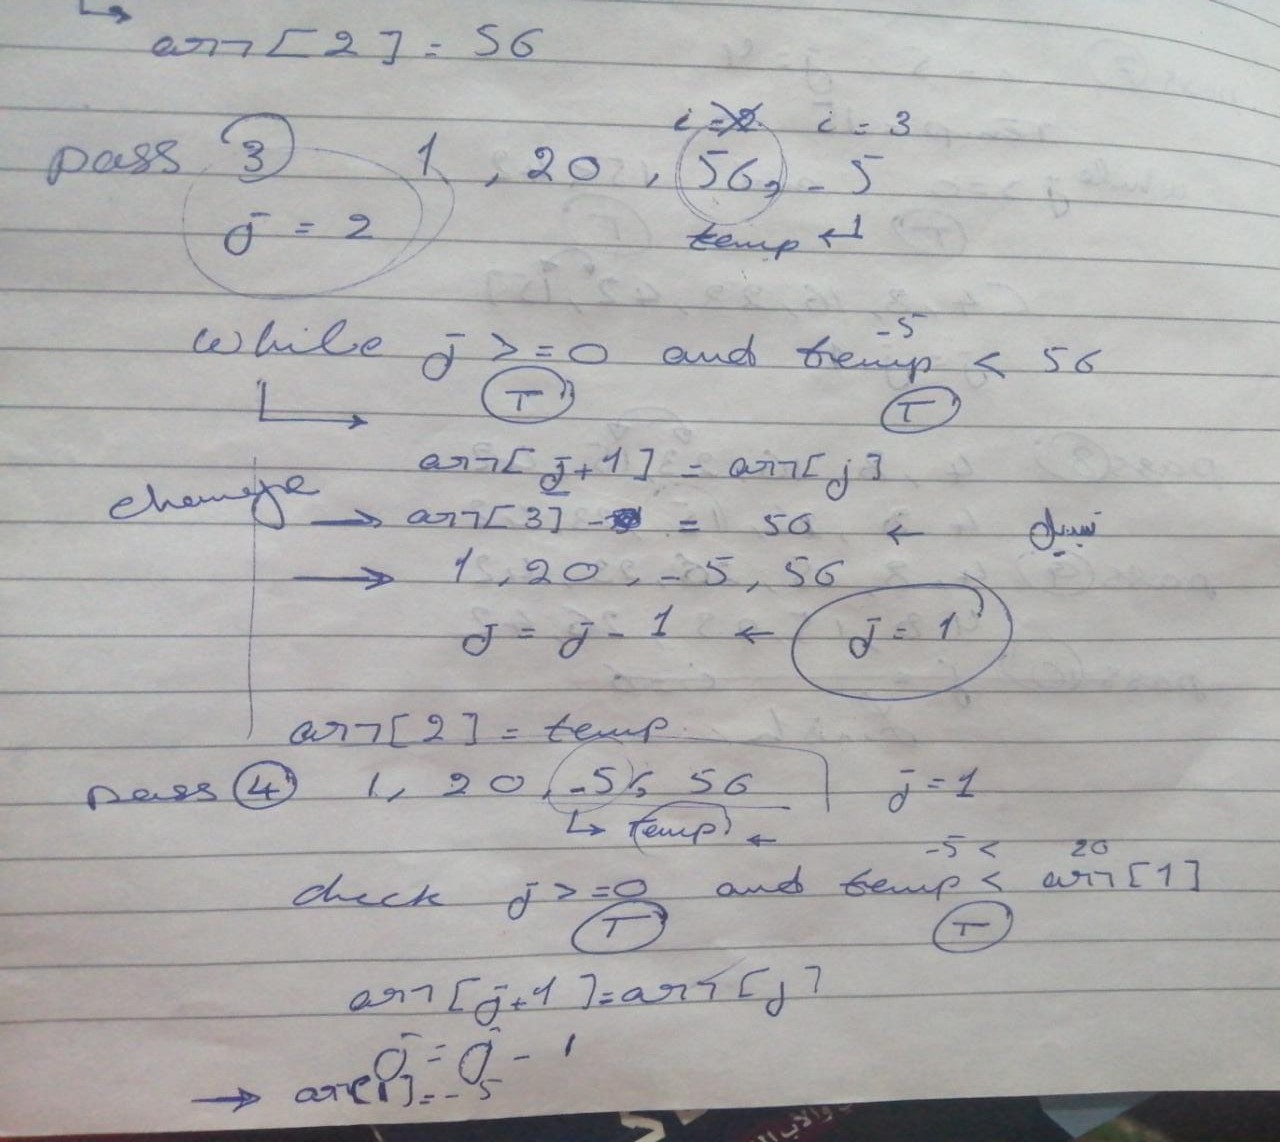 arr[2] = 56
i=2 i = 3
pass 3 1 , 20 , 56, -5
j = 2 temp ↵
while j >= 0 and temp < 56
-5
T T
arr[j+1] = arr[j]
change → arr[3] = 56 ← تبديل
→ 1, 20, -5, 56
j = j - 1 ← j = 1
arr[2] = temp
pass 4 1, 20, -5, 56 j = 1
↳ temp ←
-5 < 20
check j >= 0 and temp < arr[1]
T T
arr[j+1] = arr[j]
j = j - 1
→ arr[1] = -5